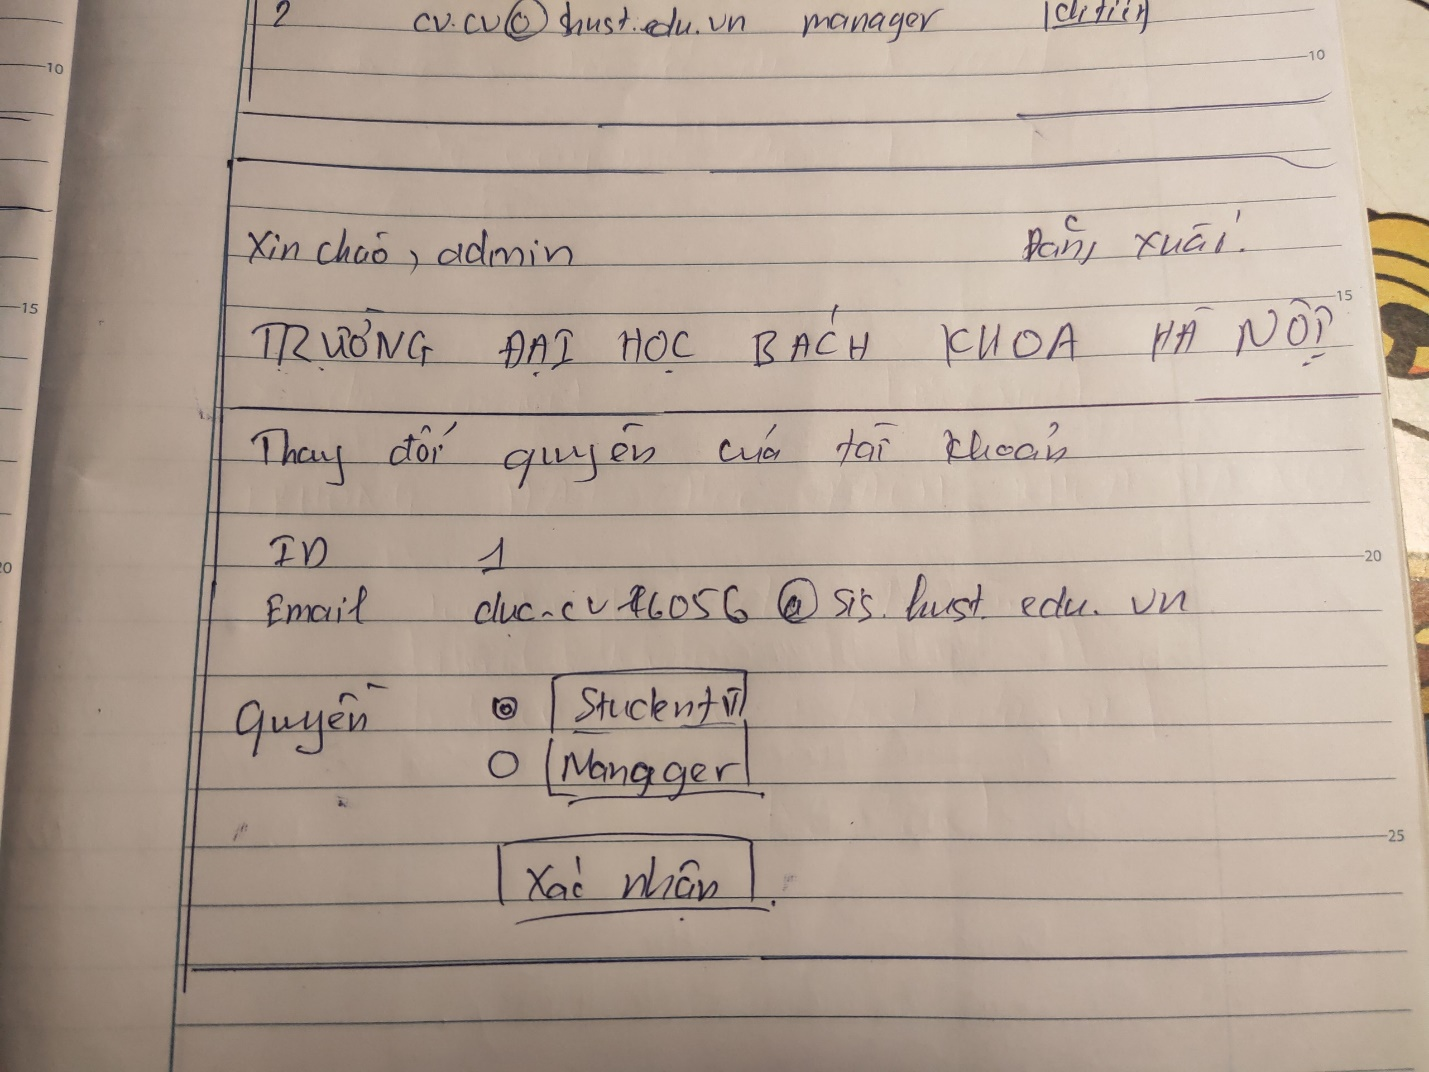 2 cv.cv@hust.edu.vn manager
10
10
Xin chào, admin Đăng xuất.
15
15
TRƯỜNG ĐẠI HỌC BÁCH KHOA HÀ NỘI
Thay đổi quyền của tài khoản
ID 1
20
Email duc.cv16056@sis.hust.edu.vn
Quyền Student
Manager
25
Xác nhận